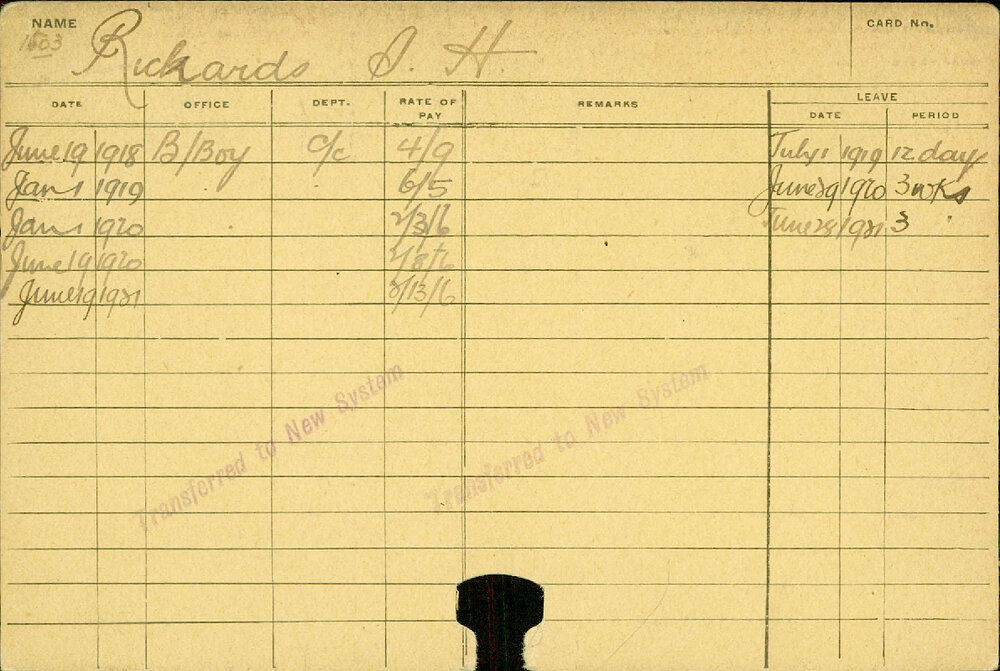 NAME
CARD No.
1503
Rickards S. H.
DATE OFFICE DEPT. RATE OF PAY REMARKS LEAVE
DATE PERIOD
June 19 1918 B/Boy C/c 4/9 July 1 1919 12 days
Jan 1 1919 6/5 June 29 1920 3 wks
Jan 1 1920 2/3/6 June 28 1921 3 "
June 19 1920 2/8/6
June 19 1921 2/13/6
Transferred to New System
Transferred to New System